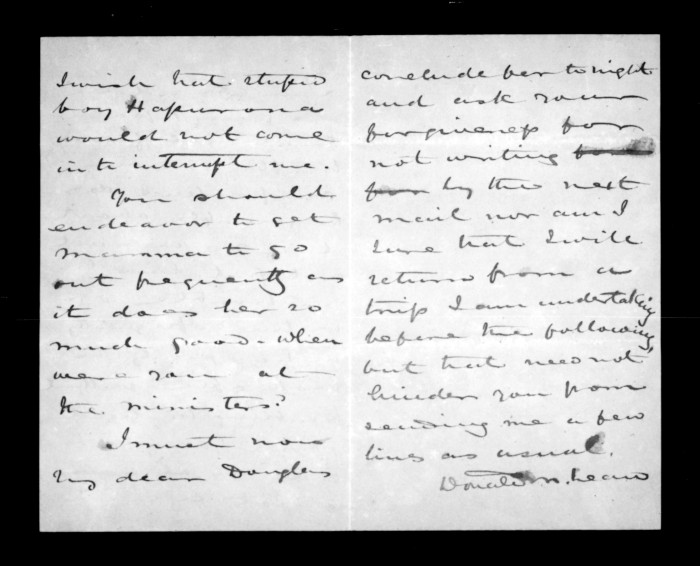 I wish that stupid
boy Hapurona
would not come
in to interrupt me.
You should
endeavor to get
Mamma to go
out frequently as
it does her so
much good. When
were you at
the ministers?
I must now
my dear Douglas
conclude for tonight
and ask your
forgiveness for
not writing
by the next
mail nor am I
sure that I will
return from a
trip I am undertaking
before the following,
but that need not
hinder you from
sending me a few
lines as usual.
Donald McLean